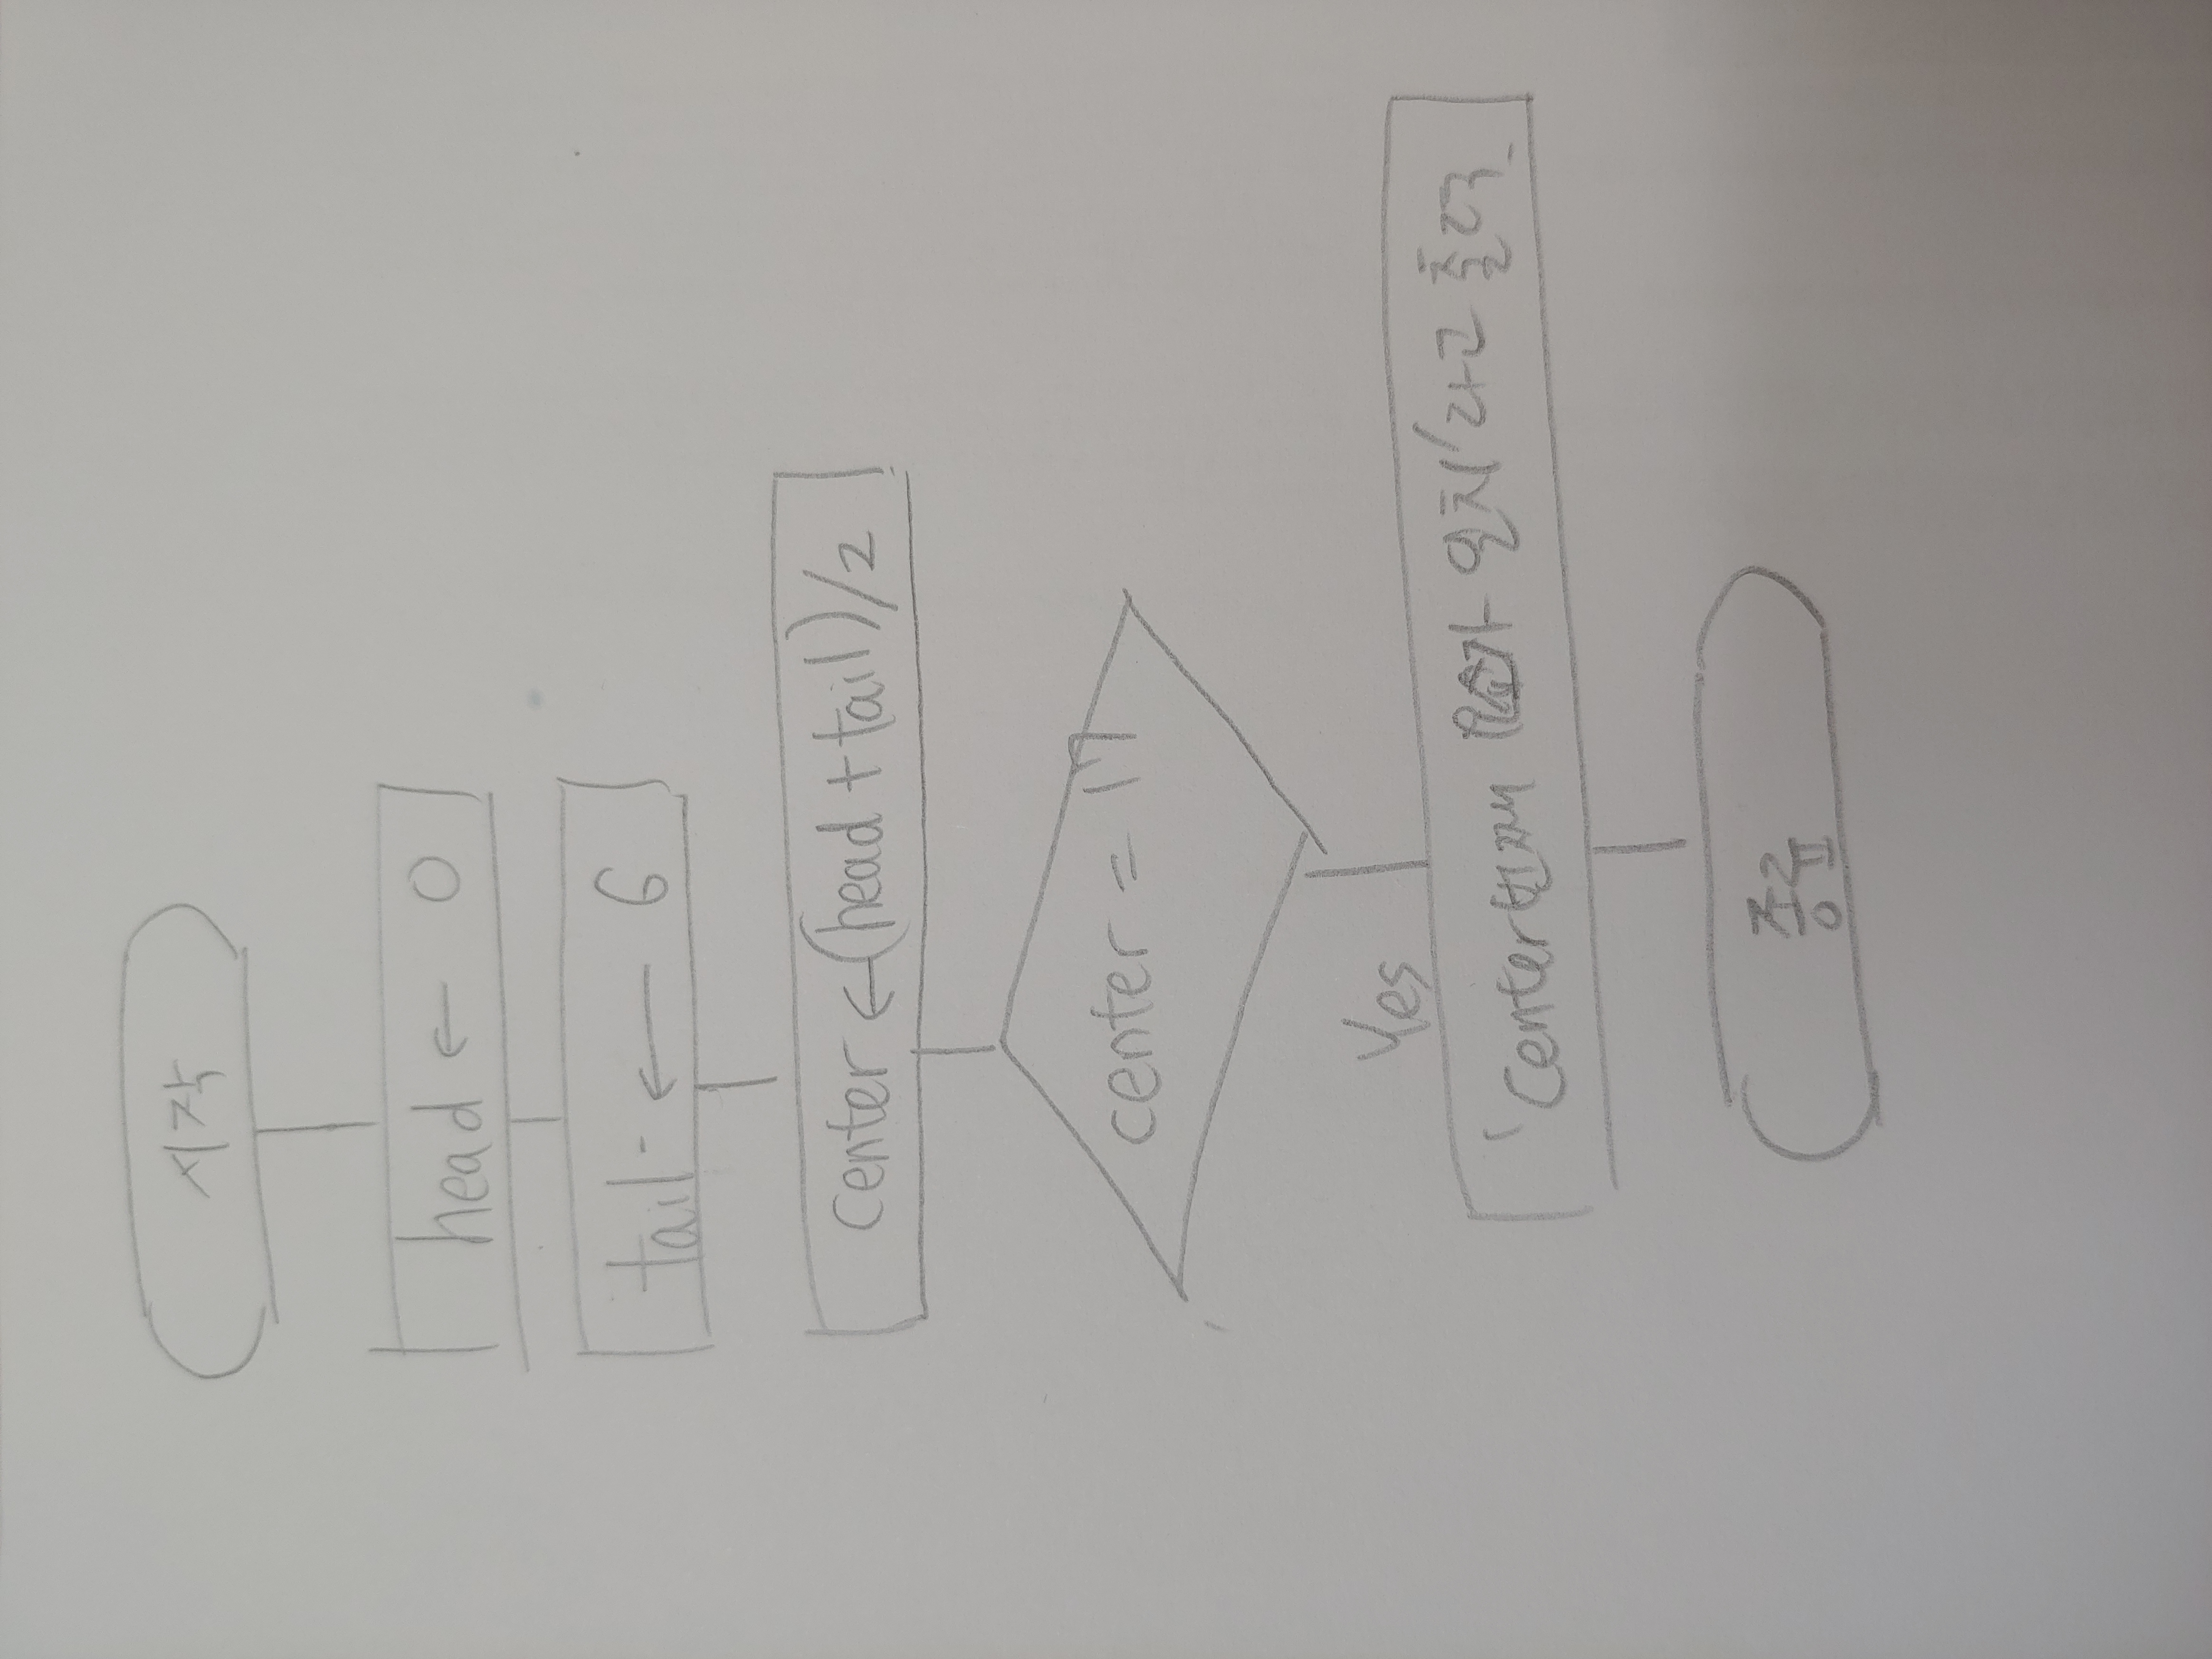 시작
head ← 0
tail ← 6
center ← (head + tail)/2
center = 17
Yes
'center번째 요소가 일치'라고 출력
종료